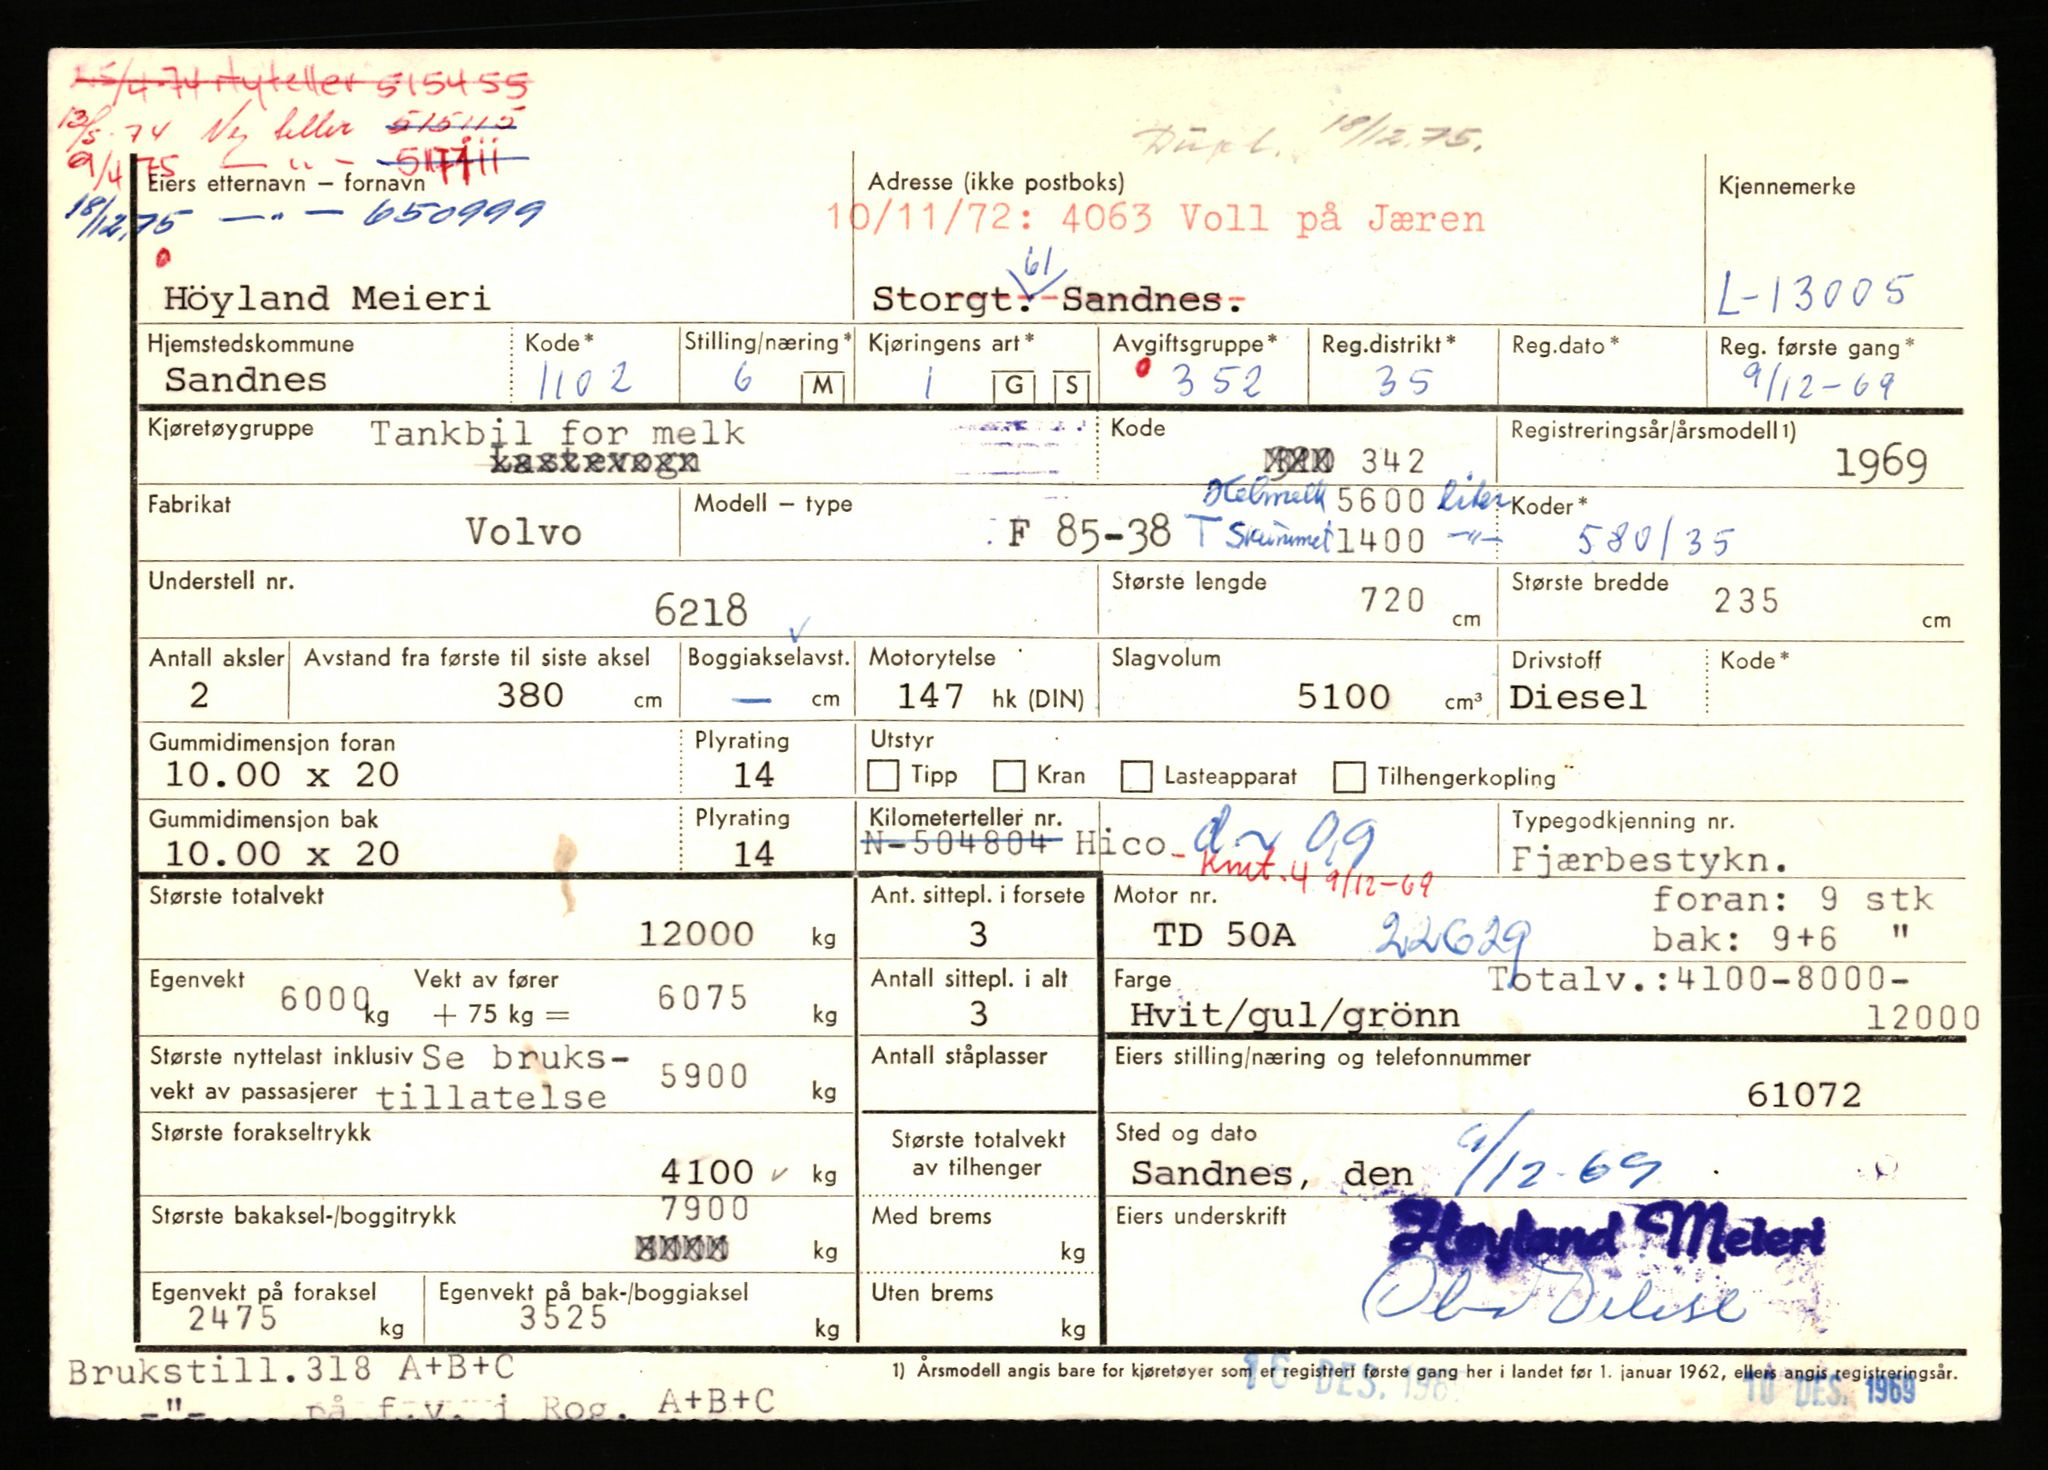 25/4-74 Nyteller 515455
13/5-74 Ny teller 515115
9/4 75 — " —
18/12.75 — " — 650999
Dupl. 18/12.75.
Eiers etternavn – fornavn
Adresse (ikke postboks)
Kjennemerke
10/11/72: 4063 Voll på Jæren
61
Höyland Meieri
Storgt. Sandnes.
L-13005
Hjemstedskommune
Kode*
Stilling/næring*
Kjøringens art*
Avgiftsgruppe*
Reg.distrikt*
Reg.dato*
Reg. første gang*
Sandnes
1102
6 M
1 G S
352
35
9/12-69
Kjøretøygruppe
Tankbil for melk
Lastevogn
Kode
342
Registreringsår/årsmodell1)
1969
Fabrikat
Volvo
Modell – type
F 85-38
Helmelk 5600 liter
T Skummet 1400 —"—
Koder*
580/35
Understell nr.
6218
Største lengde
720 cm
Største bredde
235 cm
Antall aksler
2
Avstand fra første til siste aksel
380 cm
Boggiakselavst.
— cm
Motorytelse
147 hk (DIN)
Slagvolum
5100 cm³
Drivstoff
Diesel
Kode*
Gummidimensjon foran
10.00 x 20
Plyrating
14
Utstyr
Tipp Kran Lasteapparat Tilhengerkopling
Gummidimensjon bak
10.00 x 20
Plyrating
14
Kilometerteller nr.
N-504804 Hico
0,9
Kmt. 4 9/12-69
Typegodkjenning nr.
Fjærbestykn.
foran: 9 stk
bak: 9+6 "
Totalv.:4100-8000-
12000
Største totalvekt
12000 kg
Ant. sittepl. i forsete
3
Motor nr.
TD 50A 22629
Egenvekt
6000 kg
Vekt av fører
+ 75 kg =
6075 kg
Antall sittepl. i alt
3
Farge
Hvit/gul/grönn
Største nyttelast inklusiv
vekt av passasjerer
Se bruks-
tillatelse
5900 kg
Antall ståplasser
Eiers stilling/næring og telefonnummer
61072
Største forakseltrykk
4100 kg
Største totalvekt
av tilhenger
Sted og dato
Sandnes, den 9/12-69
Største bakaksel-/boggitrykk
7900
kg
Med brems
kg
Eiers underskrift
Høyland Meieri
Egenvekt på foraksel
2475 kg
Egenvekt på bak-/boggiaksel
3525 kg
Uten brems
kg
Brukstill.318 A+B+C
-"- på f.v. i Rog. A+B+C
1) Årsmodell angis bare for kjøretøyer som er registrert første gang her i landet før 1. januar 1962, ellers angis registreringsår.
16 DES. 196
10 DES. 1969